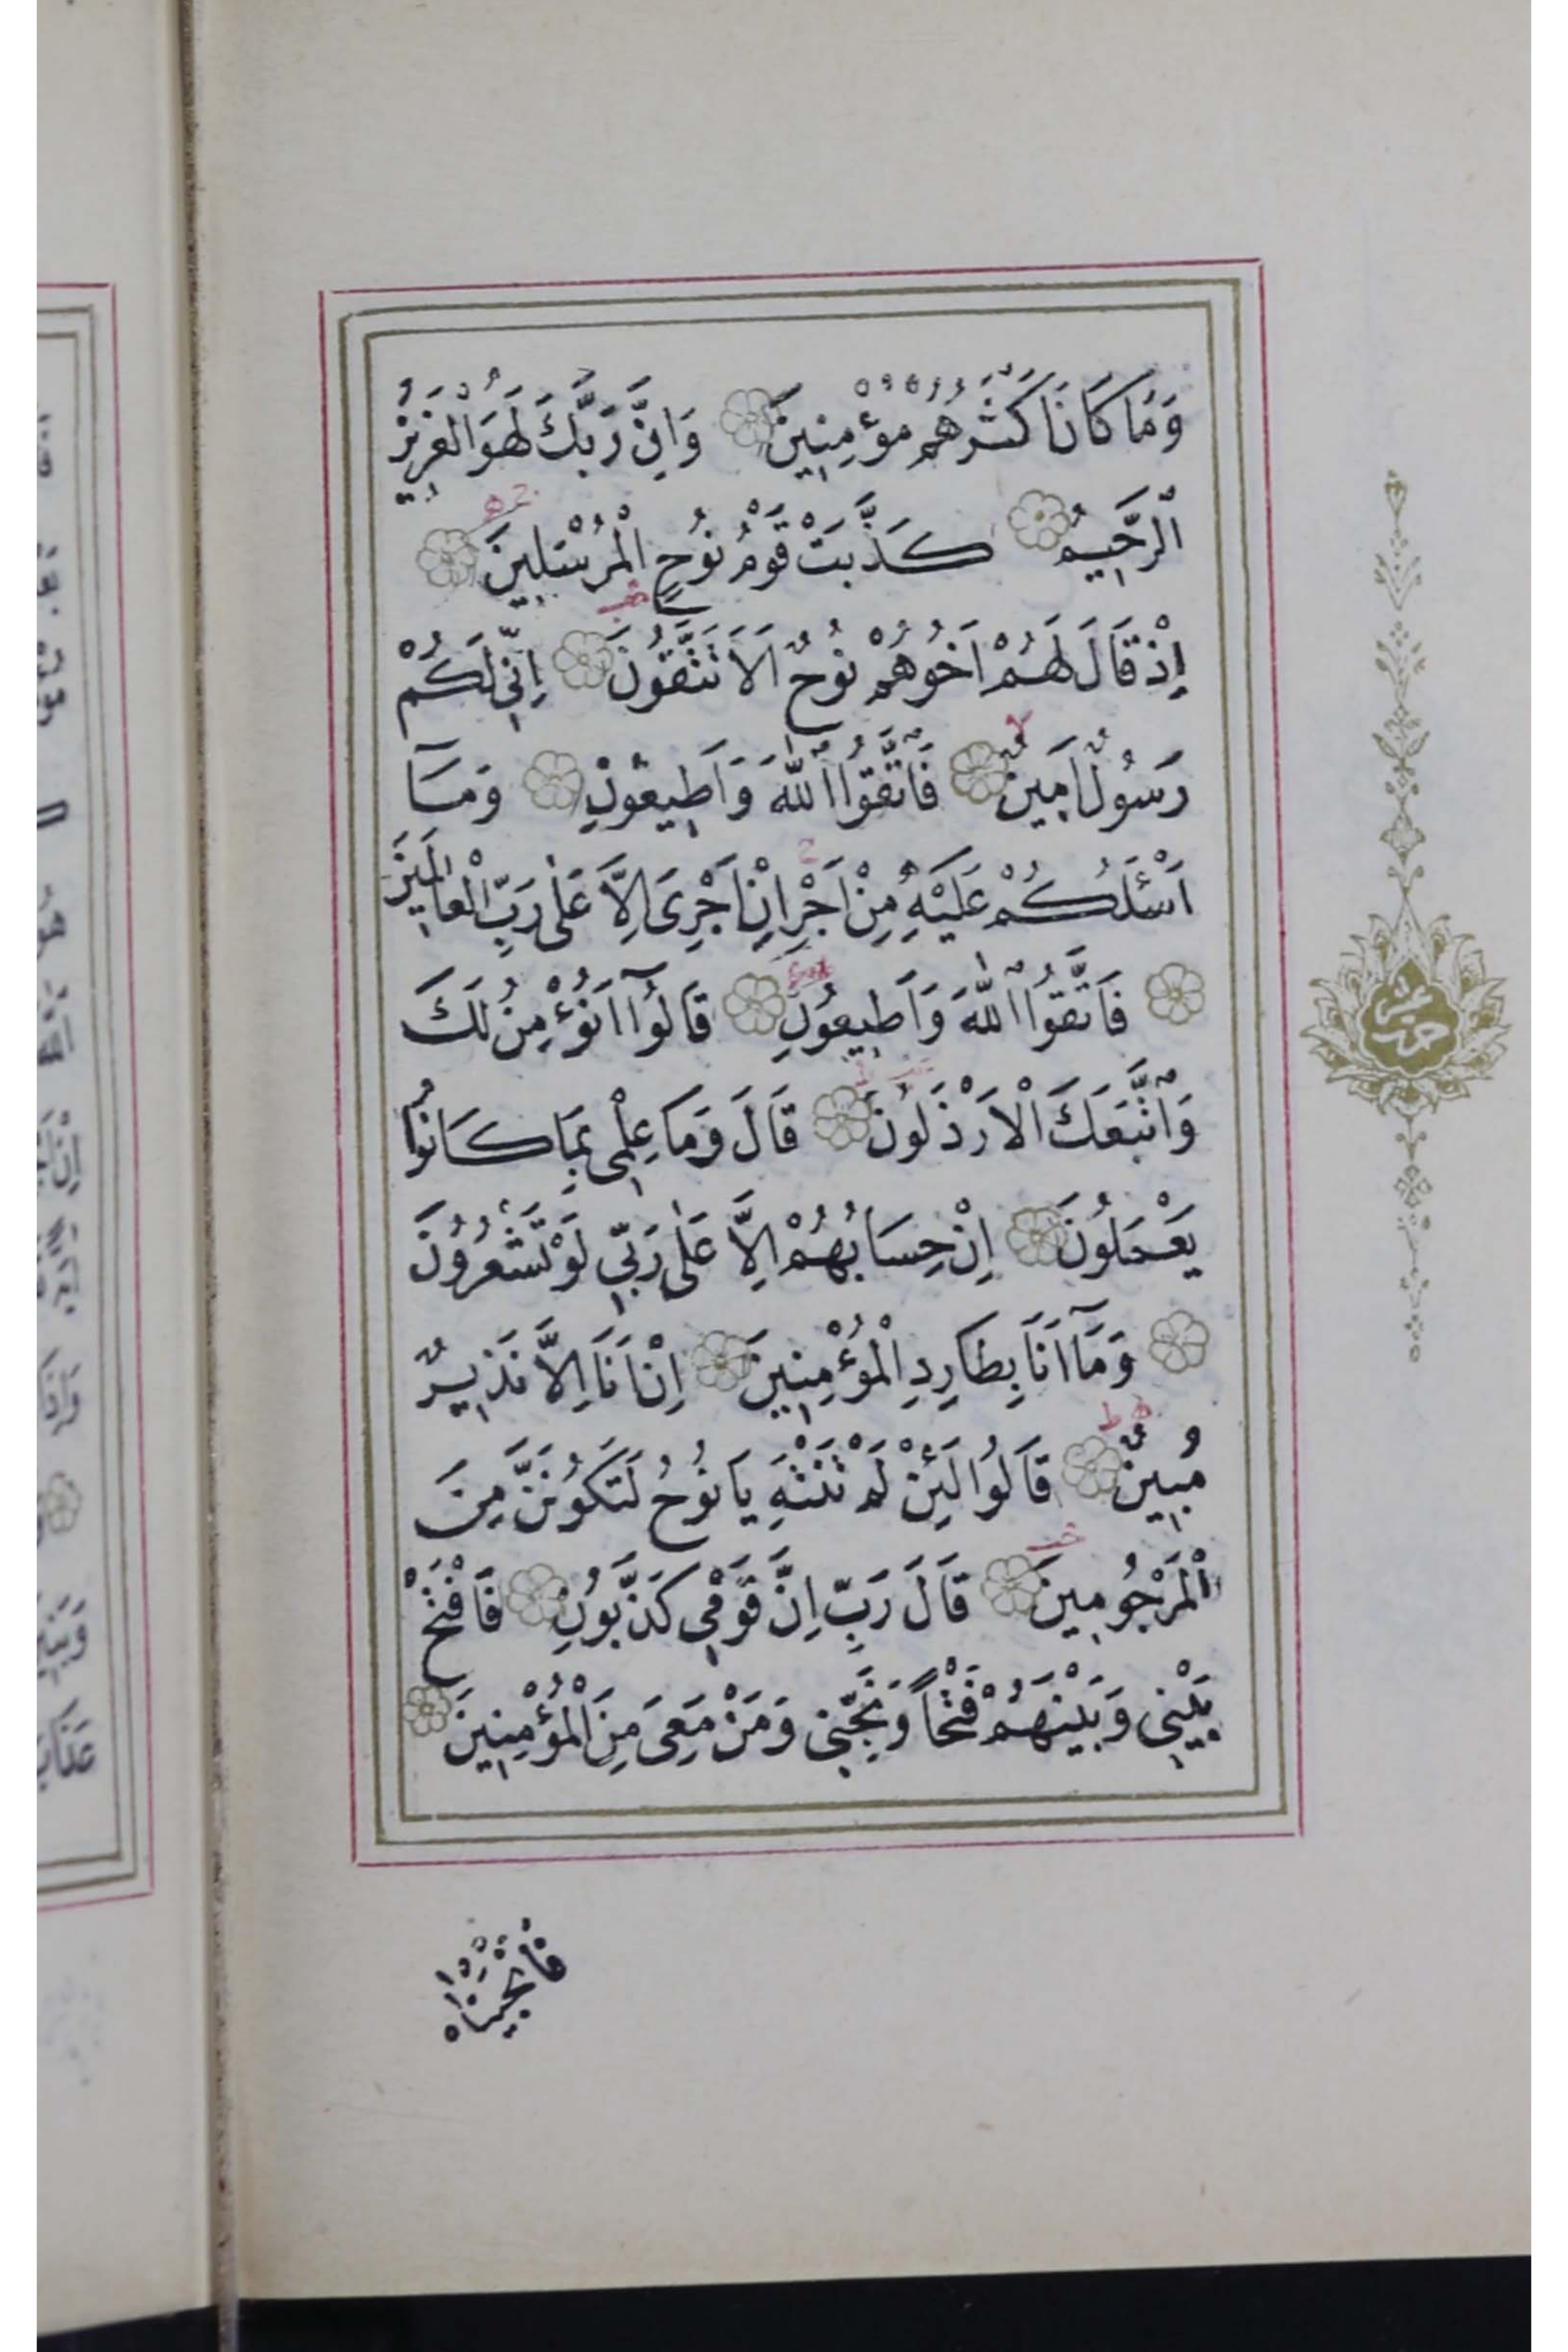 وَمَا كَانَ اَكْثَرُهُمْ مُؤْمِنِينَ وَاِنَّ رَبَّكَ لَهُوَ الْعَزِيزُ
الرَّحِيمُ كَذَّبَتْ قَوْمُ نُوحٍ الْمُرْسَلِينَ
اِذْ قَالَ لَهُمْ اَخُوهُمْ نُوحٌ اَلَا تَتَّقُونَ اِنِّي لَكُمْ
رَسُولٌ اَمِينٌ فَاتَّقُوا اللّٰهَ وَاَطِيعُونِ وَمَآ
اَسْئَلُكُمْ عَلَيْهِ مِنْ اَجْرٍ اِنْ اَجْرِىَ اِلَّا عَلٰى رَبِّ الْعَالَمِينَ
فَاتَّقُوا اللّٰهَ وَاَطِيعُونِ قَالُوٓا اَنُؤْمِنُ لَكَ
وَاتَّبَعَكَ الْاَرْذَلُونَ قَالَ وَمَا عِلْمِي بِمَا كَانُوا
يَعْمَلُونَ اِنْ حِسَابُهُمْ اِلَّا عَلٰى رَبِّي لَوْ تَشْعُرُونَ
وَمَآ اَنَا بِطَارِدِ الْمُؤْمِنِينَ اِنْ اَنَا اِلَّا نَذِيرٌ
مُبِينٌ قَالُوا لَئِنْ لَمْ تَنْتَهِ يَا نُوحُ لَتَكُونَنَّ مِنَ
الْمَرْجُومِينَ قَالَ رَبِّ اِنَّ قَوْمِي كَذَّبُونِ فَافْتَحْ
بَيْنِي وَبَيْنَهُمْ فَتْحًا وَنَجِّنِي وَمَنْ مَعِىَ مِنَ الْمُؤْمِنِينَ
فَاَنْجَيْنَاهُ